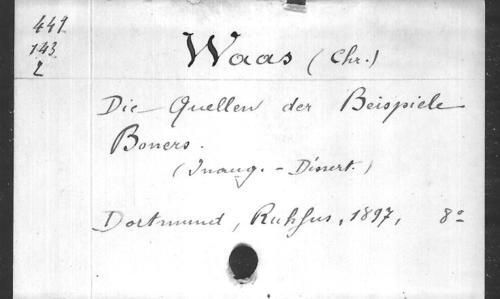 449
143
2
Waas (Chr.)
Die Quellen der Beispiele
Boners.
(Inaug. - Dissert.)
Dortmund, Ruhfus, 1897, 8°